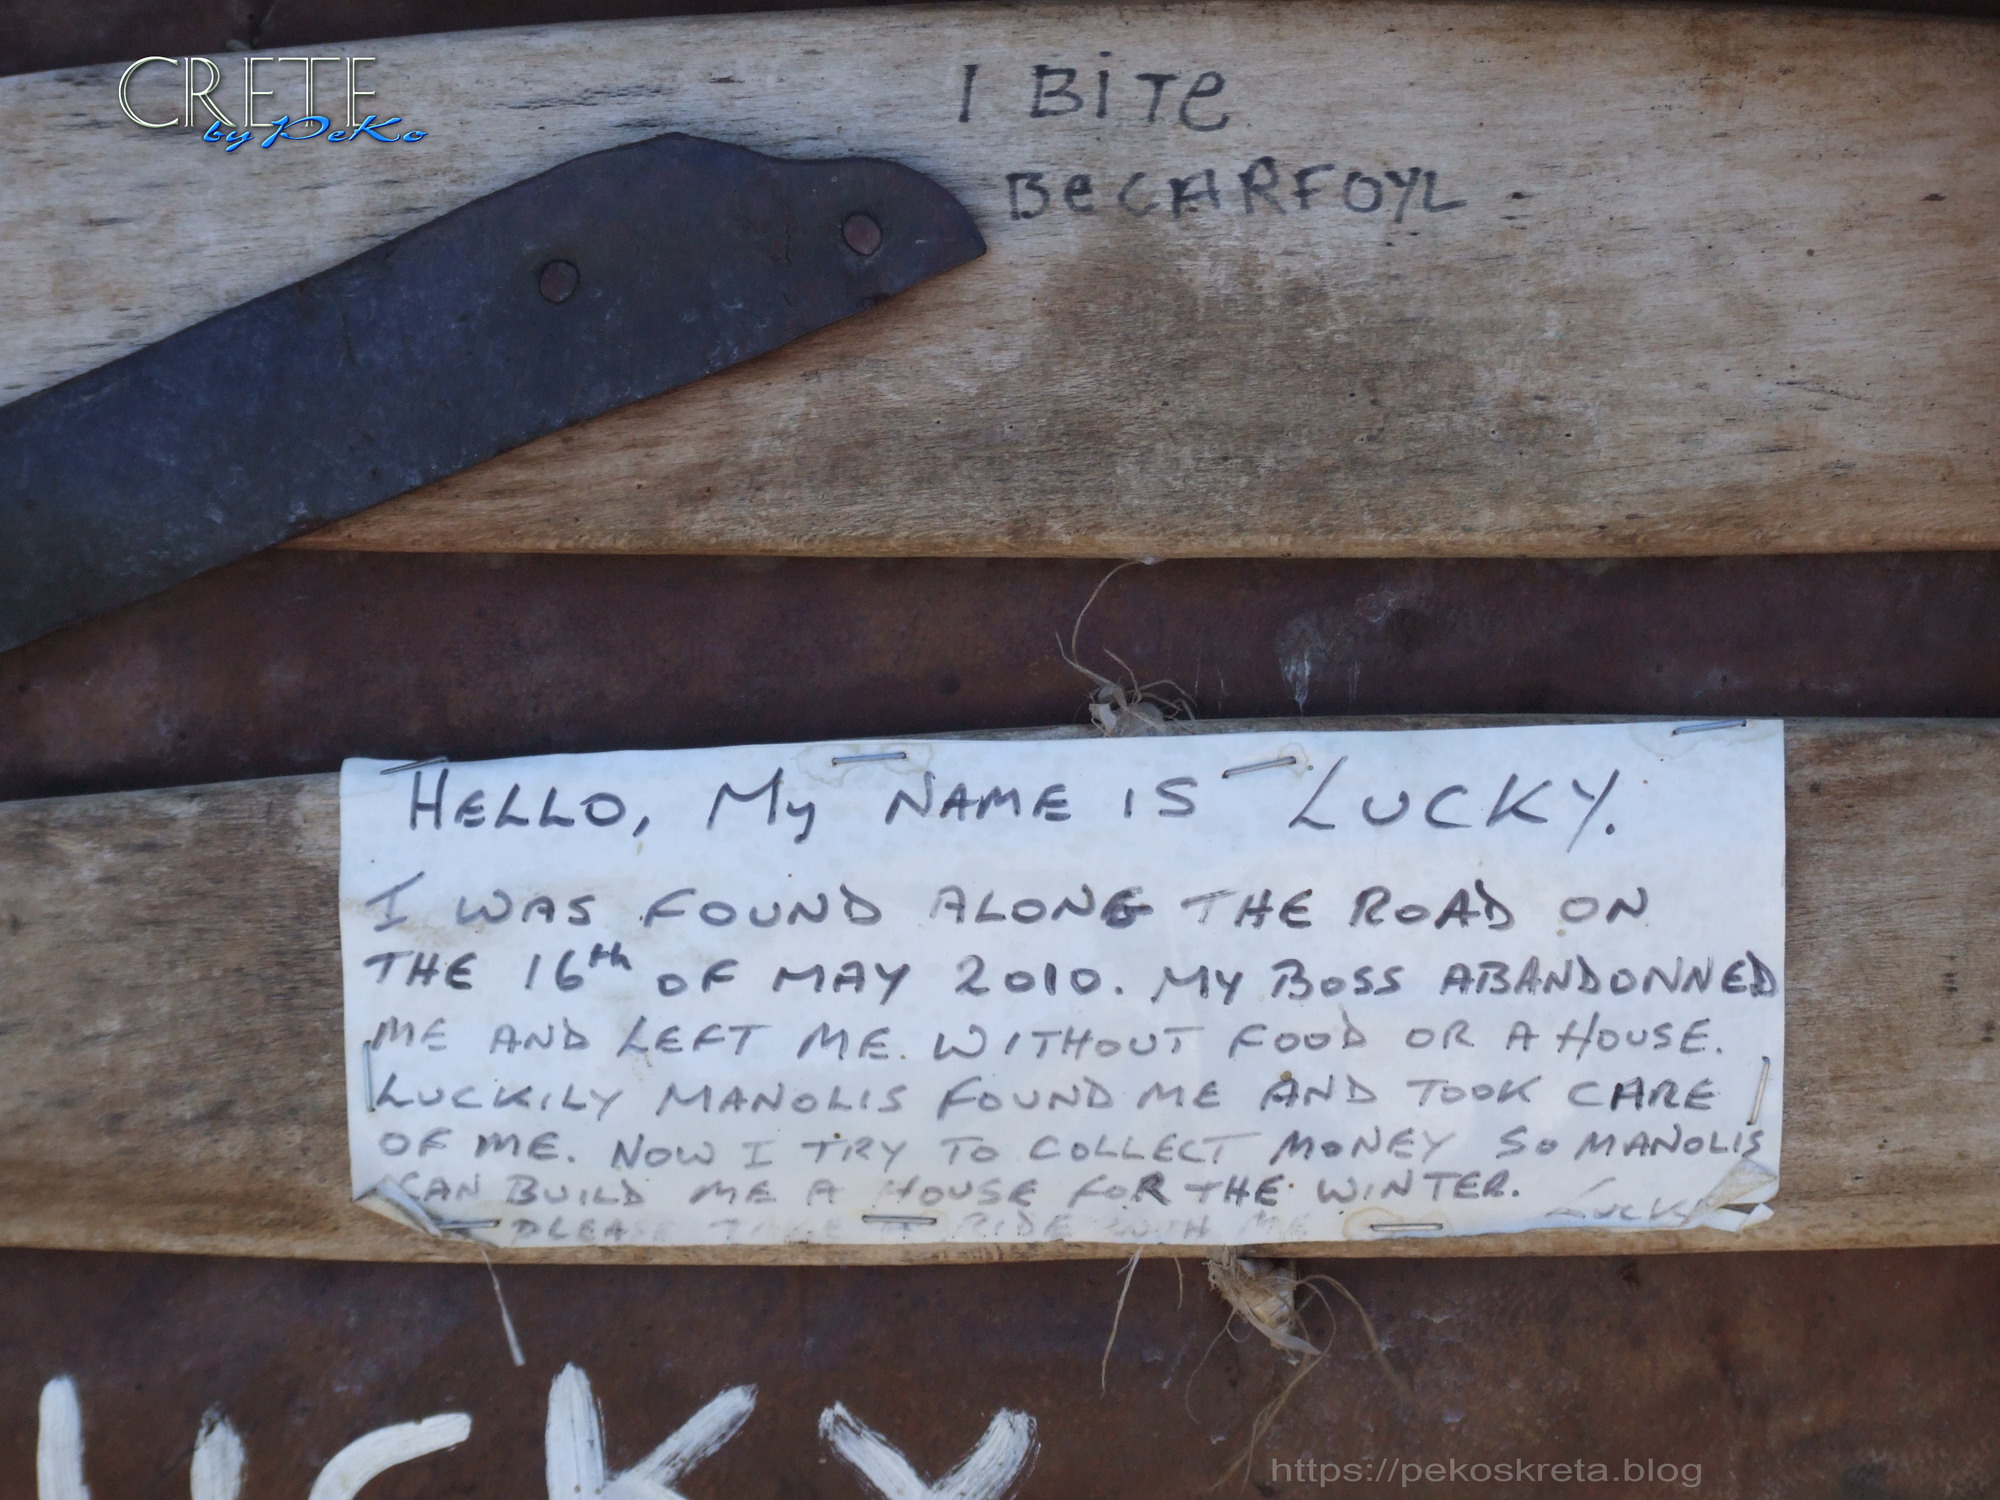 CRETE
by PeKo
I BiTe
BeCARFOYL
HELLO, My NAME IS LUCKY.
I WAS FOUND ALONG THE ROAD ON
THE 16th OF MAY 2010. MY BOSS ABANDONNED
ME AND LEFT ME. WITHOUT FOOD OR A HOUSE.
LUCKILY MANOLIS FOUND ME AND TOOK CARE
OF ME. NOW I TRY TO COLLECT MONEY SO MANOLIS
CAN BUILD ME A HOUSE FOR THE WINTER.
LUCKY
PLEASE TAKE A RIDE WITH ME
LUCKY
https://pekoskreta.blog